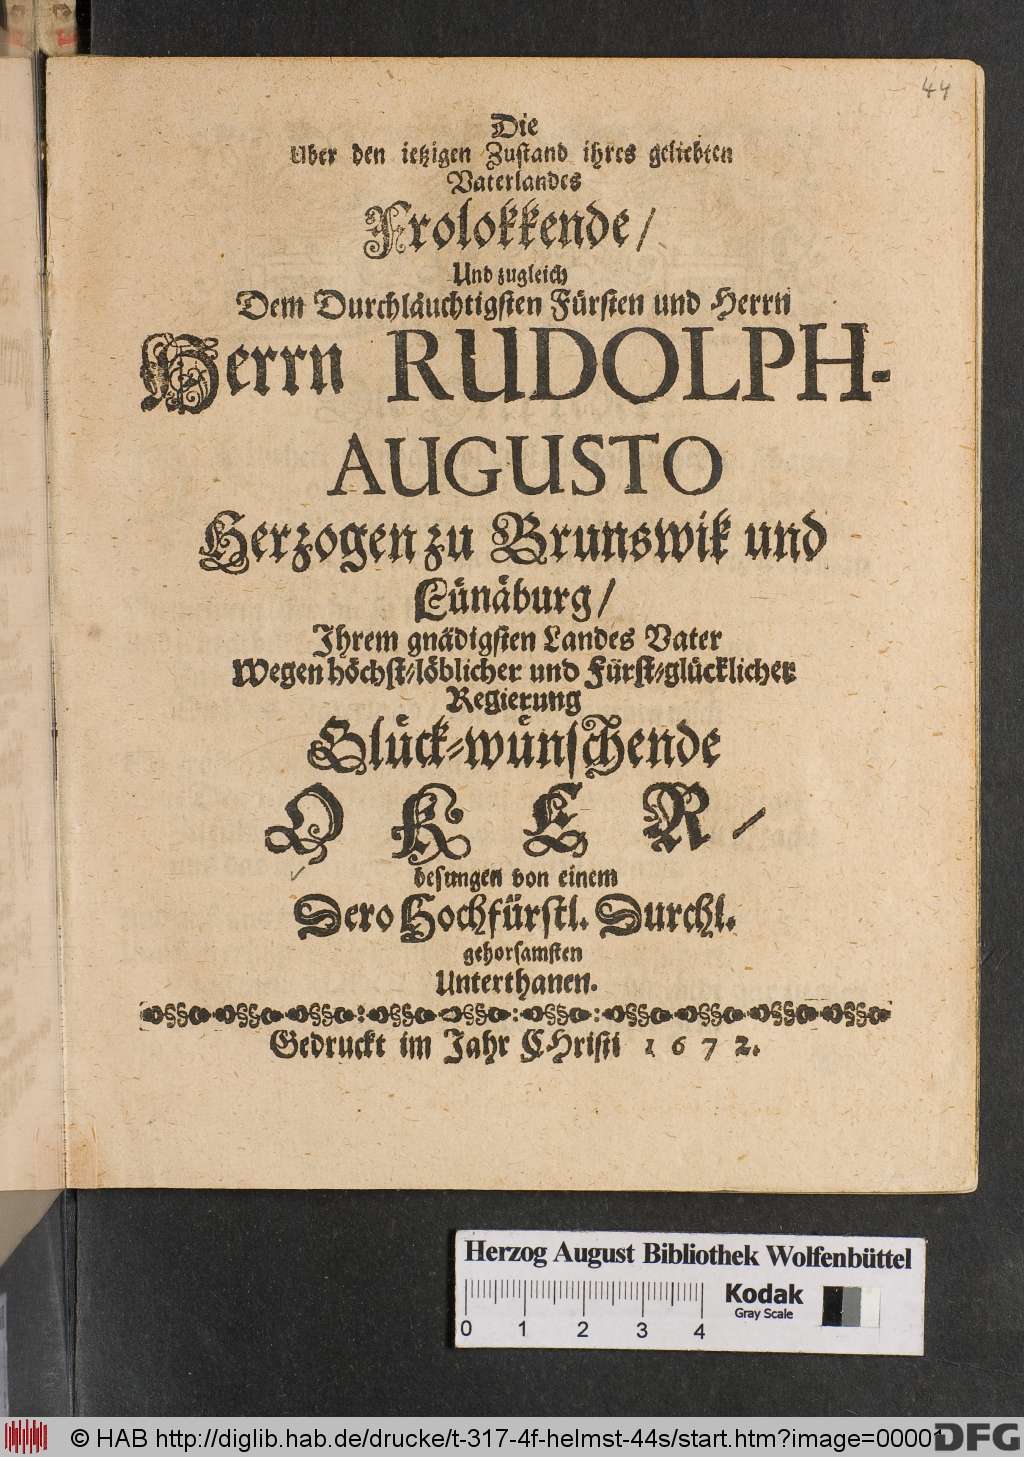 44
Die
Uber den ietzigen Zustand ihres geliebten
Vaterlandes
Frolokkende/
Und zugleich
Dem Durchläuchtigsten Fürsten und Herrn
Herrn RUDOLPH-
AUGUSTO
Herzogen zu Brunswik und
Lünäburg/
Ihrem gnädigsten Landes Vater
Wegen höchst-löblicher und Fürst-glücklicher
Regierung
Glück-wünschende
OKER/
besungen von einem
Dero Hochfürstl. Durchl.
gehorsamsten
Unterthanen.
Gedruckt im Jahr CHristi 1672.
Herzog August Bibliothek Wolfenbüttel
0 1 2 3 4
Kodak
Gray Scale
© HAB http://diglib.hab.de/drucke/t-317-4f-helmst-44s/start.htm?image=00001
DFG